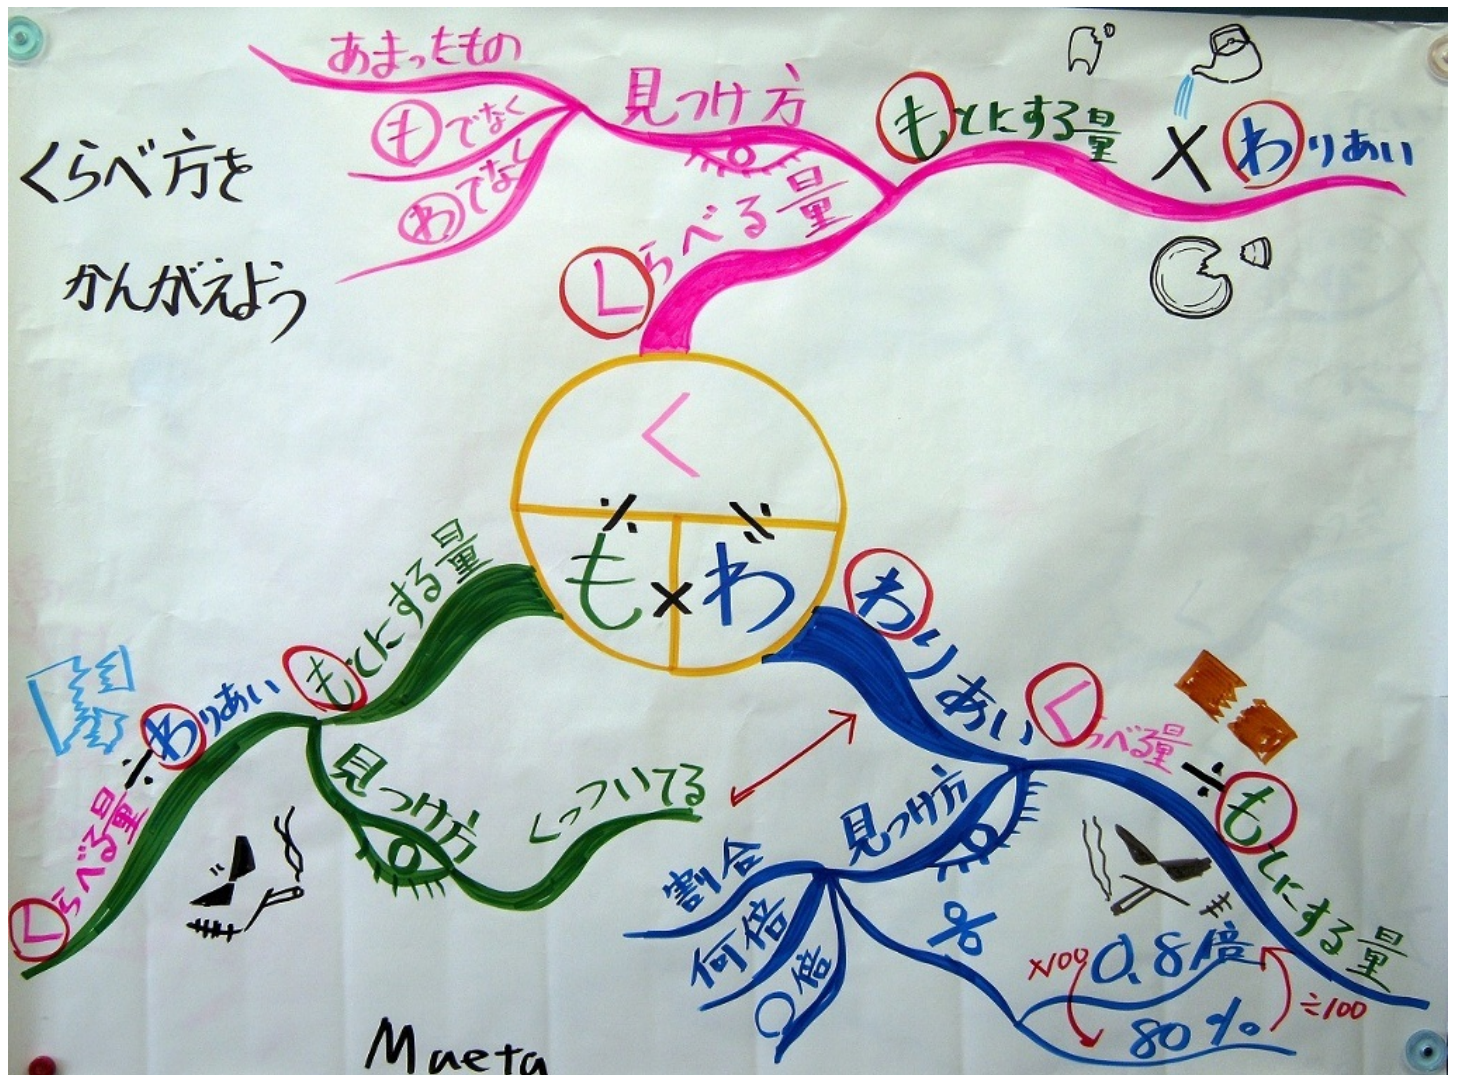 くらべ方を
かんがえよう
あまったもの
もでなく
わでなく
見つけ方
くらべる量
もとにする量
×
わりあい
く
÷ ÷
も×わ
もとにする量
くらべる量÷わりあい
見つけ方
くっついてる
わりあい
くらべる量÷もとにする量
見つけ方
割合
何倍
○倍
%
0.8倍
80%
×100
÷100
Maeta